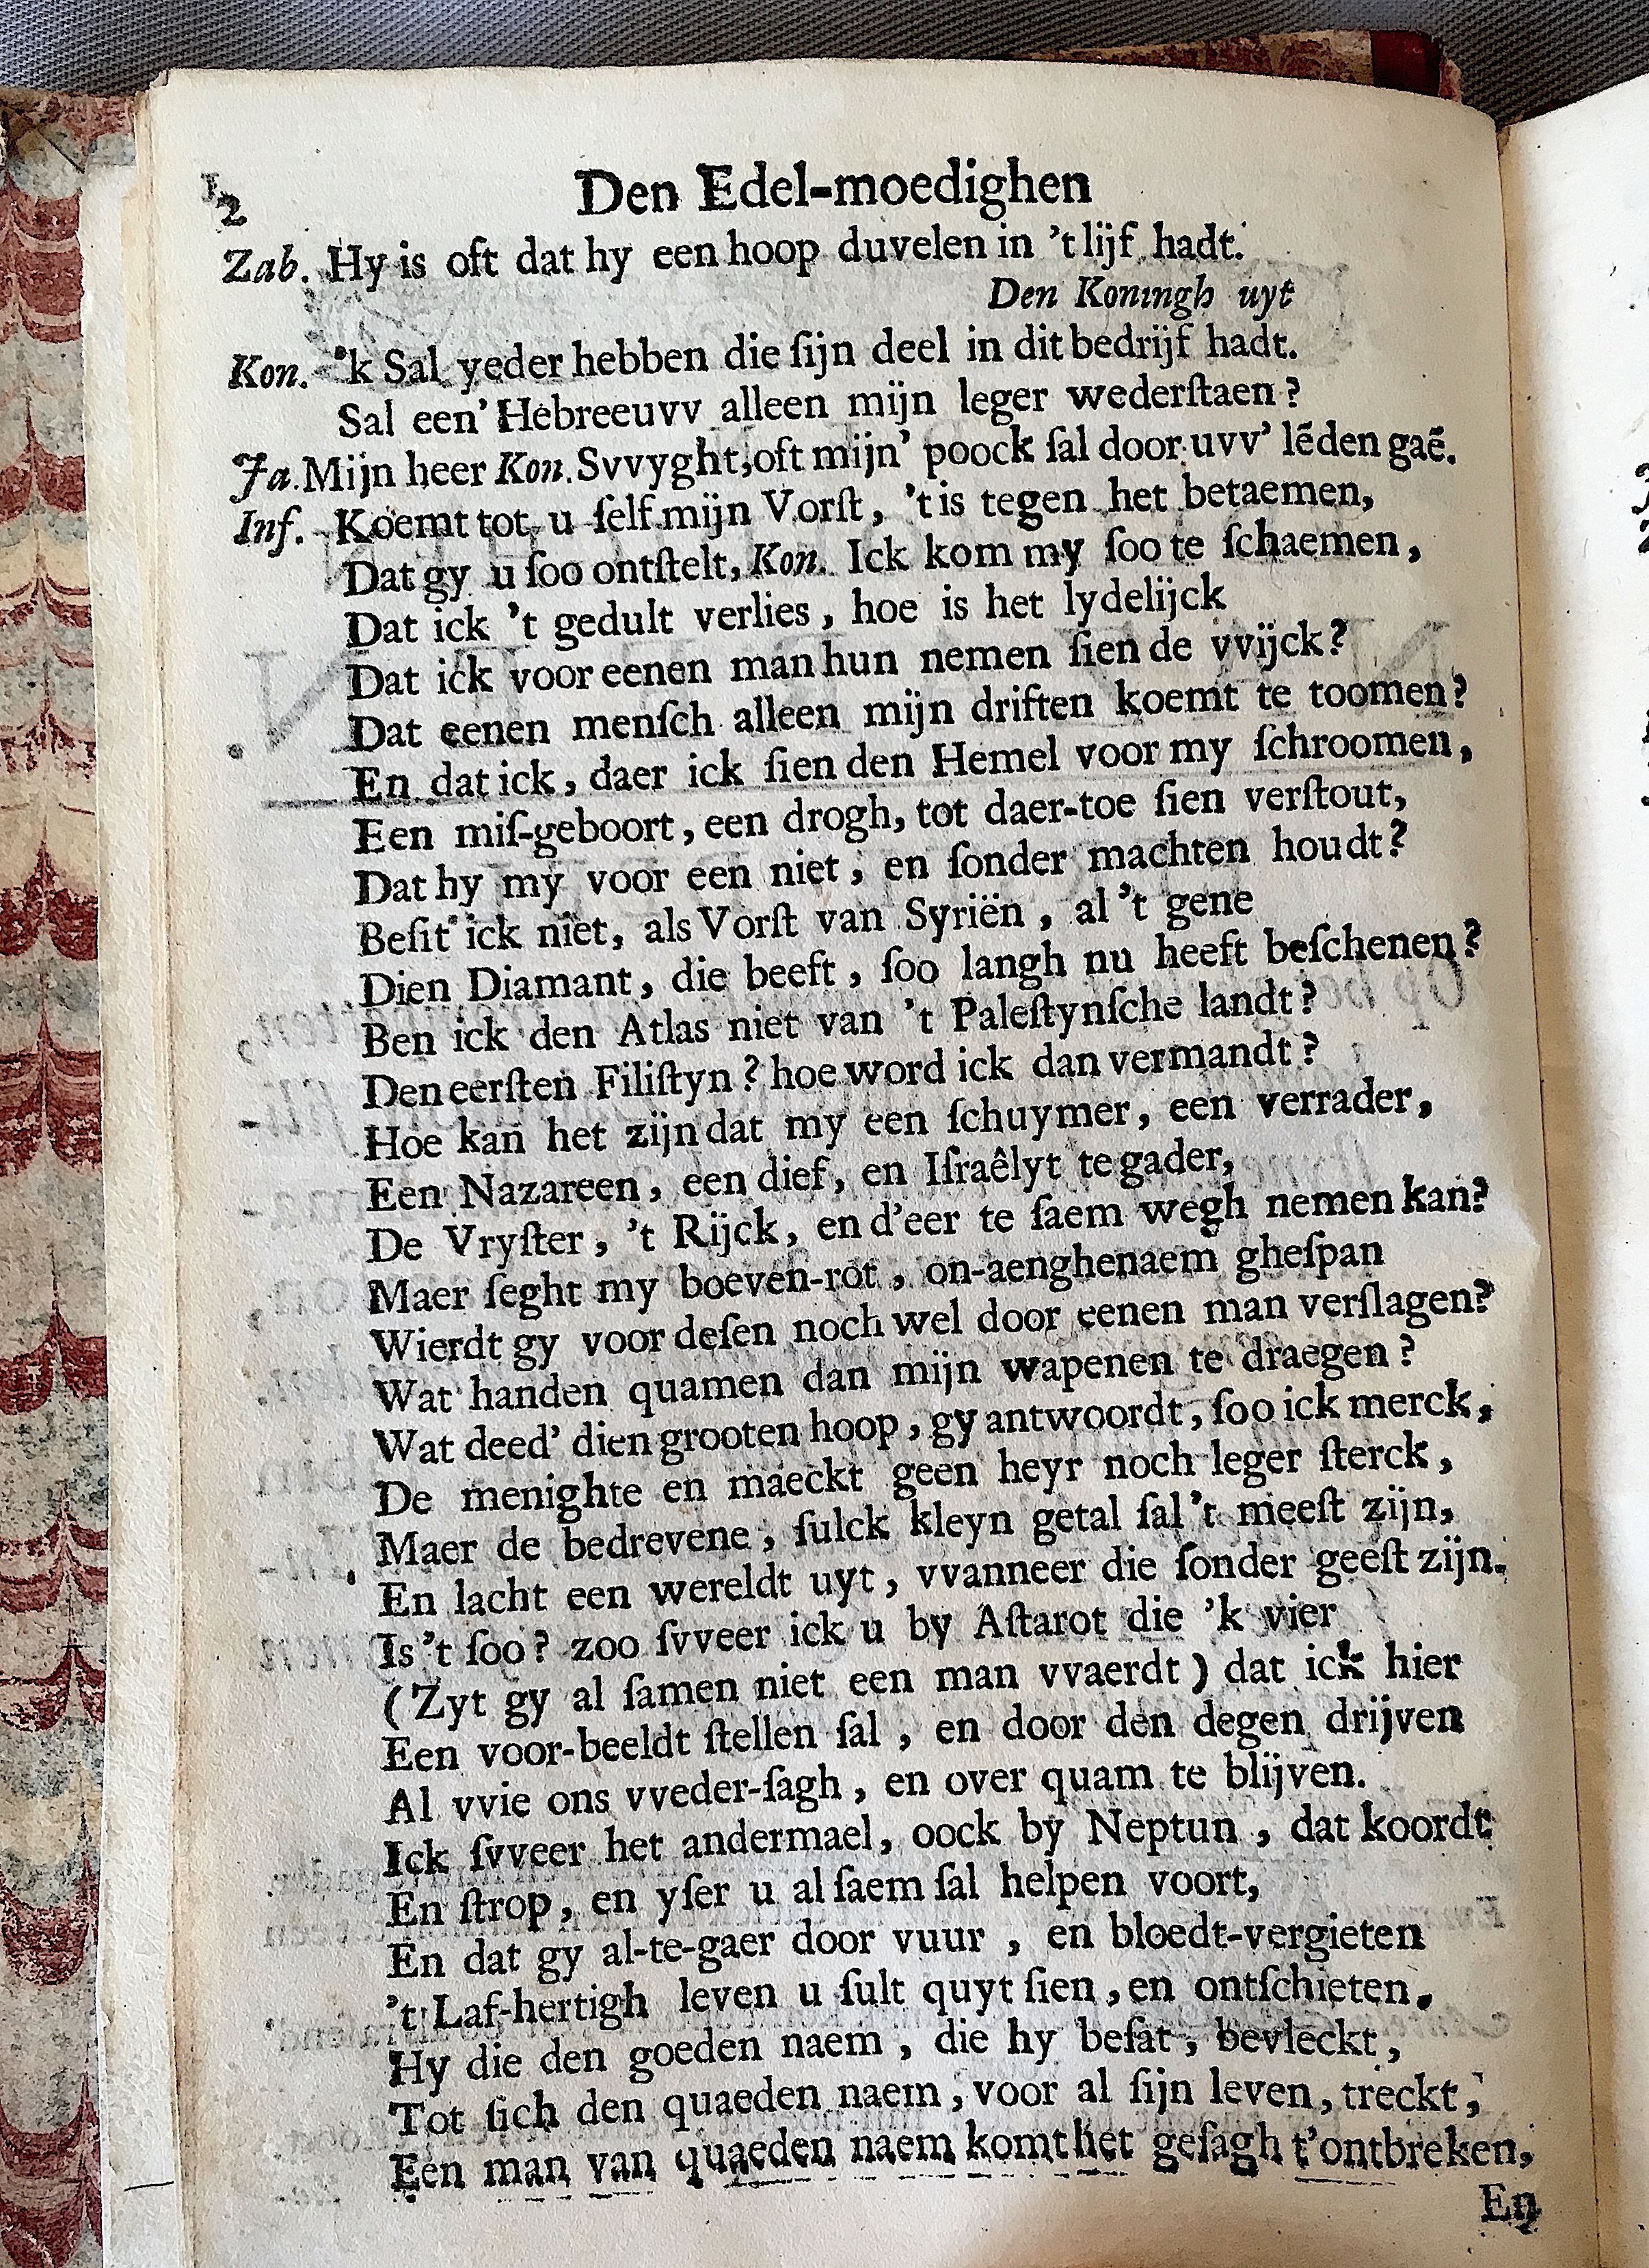 12 Den Edel-moedighen
Zab. Hy is oft dat hy een hoop duvelen in 't lijf hadt.
Den Koningh uyt
Kon. 'k Sal yeder hebben die ſijn deel in dit bedrijf hadt.
Sal een' Hebreeuvv alleen mijn leger wederſtaen?
Ja. Mijn heer Kon. Svvyght, oft mijn' poock ſal door uvv' lēden gaē.
Inf. Koemt tot u ſelf mijn Vorſt, 't is tegen het betaemen,
Dat gy u ſoo ontſtelt, Kon. Ick kom my ſoo te ſchaemen,
Dat ick 't gedult verlies, hoe is het lydelijck
Dat ick voor eenen man hun nemen ſien de vvijck?
Dat eenen menſch alleen mijn driften koemt te toomen?
En dat ick, daer ick ſien den Hemel voor my ſchroomen,
Een miſ-geboort, een drogh, tot daer-toe ſien verſtout,
Dat hy my voor een niet, en ſonder machten houdt?
Beſit ick niet, als Vorſt van Syriën, al 't gene
Dien Diamant, die beeft, ſoo langh nu heeft beſchenen?
Ben ick den Atlas niet van 't Paleſtynſche landt?
Den eerſten Filiſtyn? hoe word ick dan vermandt?
Hoe kan het zijn dat my een ſchuymer, een verrader,
Een Nazareen, een dief, en Iſraêlyt te gader,
De Vryſter, 't Rijck, en d'eer te ſaem wegh nemen kan?
Maer ſeght my boeven-rot, on-aenghenaem gheſpan
Wierdt gy voor deſen noch wel door eenen man verſlagen?
Wat handen quamen dan mijn wapenen te draegen?
Wat deed' dien grooten hoop, gy antwoordt, ſoo ick merck,
De menighte en maeckt geen heyr noch leger ſterck,
Maer de bedrevene, ſulck kleyn getal ſal 't meeſt zijn,
En lacht een wereldt uyt, vvanneer die ſonder geeſt zijn.
Is 't ſoo? zoo ſvveer ick u by Aſtarot die 'k vier
(Zyt gy al ſamen niet een man vvaerdt) dat ick hier
Een voor-beeldt ſtellen ſal, en door den degen drijven
Al vvie ons vveder-ſagh, en over quam te blijven.
Ick ſvveer het andermael, oock by Neptun, dat koordt
En ſtrop, en yſer u al ſaem ſal helpen voort,
En dat gy al-te-gaer door vuur, en bloedt-vergieten
't Laf-hertigh leven u ſult quyt ſien, en ontſchieten.
Hy die den goeden naem, die hy beſat, bevleckt,
Tot ſich den quaeden naem, voor al ſijn leven, treckt,
Een man van quaeden naem komt het geſagh t'ontbreken,
En